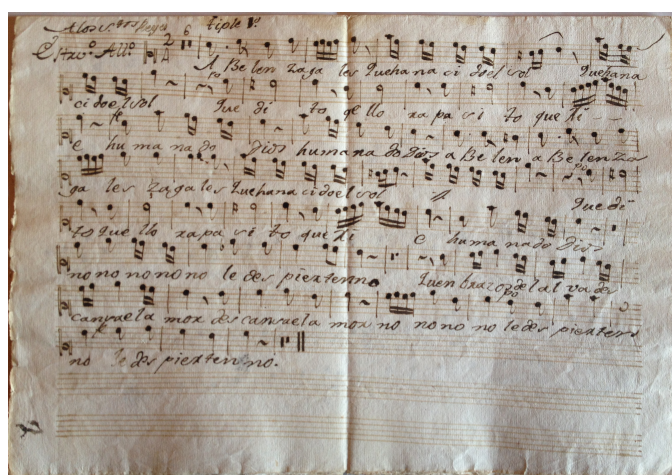 tiple 1º
Allº
A Belen zagales Quehanacidoelsol Quehana
cidoelsol que di to que llo xa pa si to que ti
e humanado Dios humanado Dios a Belen a Belenza
ga les zagales Quehanacidoelsol que di
to que llo xa pa si to que ti e humanado Dios
no no no no no le des pierten no Quen brazos del al va des
cansa el a mor des cansa el a mor no no no no le des pierten
no le des pierten no.